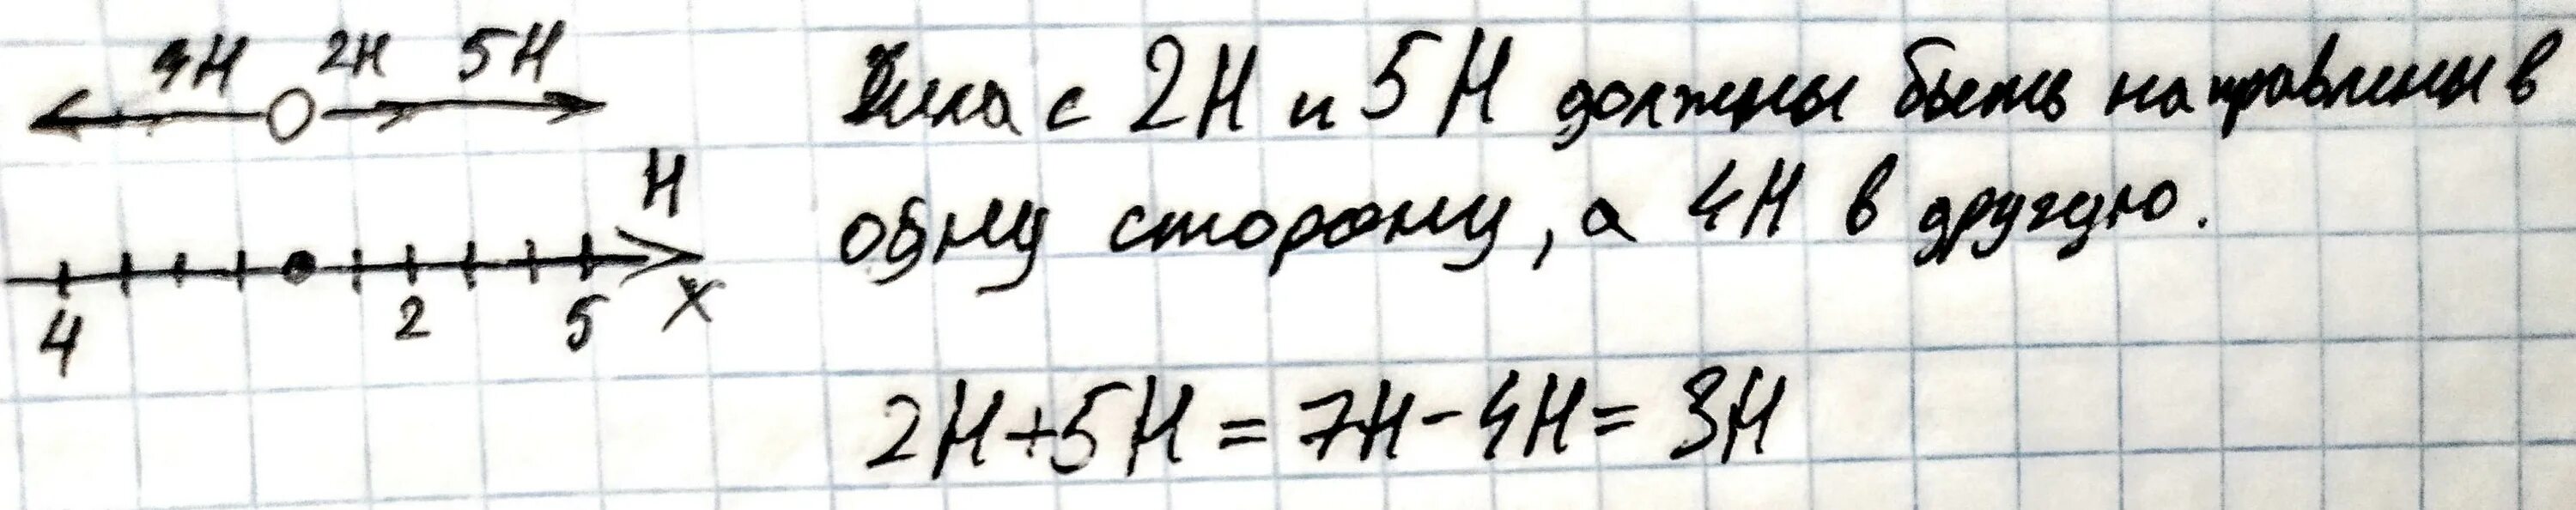 4Н 2Н 5Н
Сила с 2Н и 5Н должны быть направлены в
одну сторону, а 4Н в другую.
Н
4 2 5 X
2Н+5Н = 7Н-4Н= 3Н